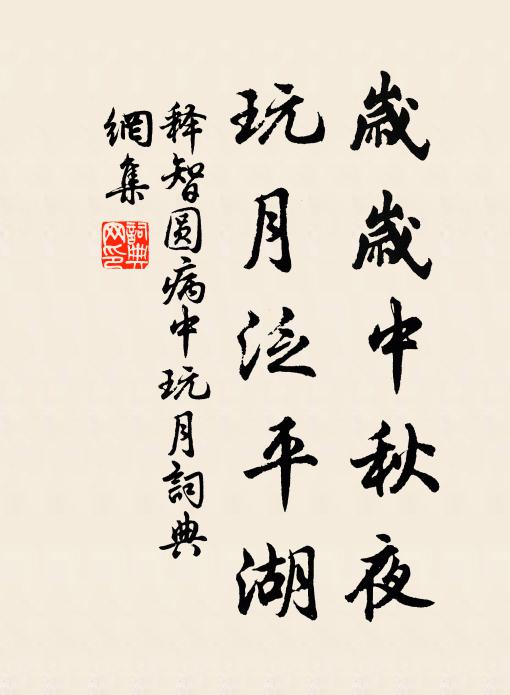 歲歲中秋夜
玩月泛平湖
释智圆病中玩月詞典
網集
詞典网印